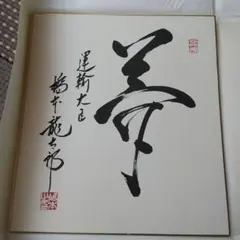 夢
運輸大臣
橋本龍太郎